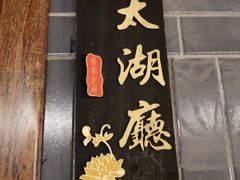 太湖廳